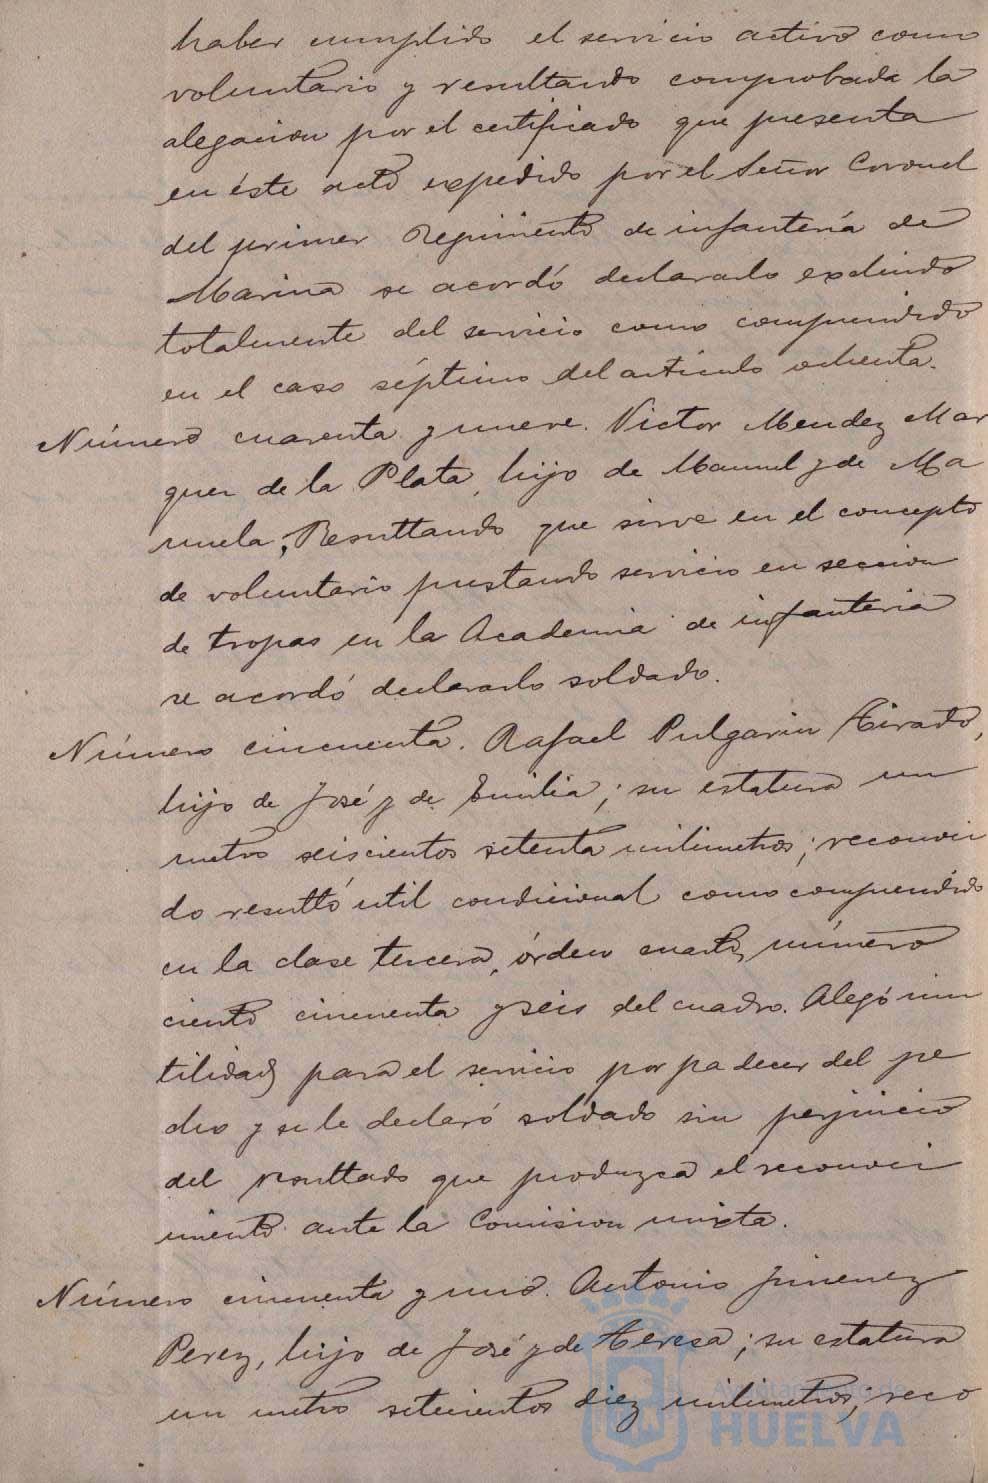 haber cumplido el servicio activo como
voluntario y resultando comprobada la
alegacion por el certificado que presenta
en éste acto expedido por el Señor Coronel
del primer Regimiento de infantería de
Marina se acordó declararlo excluido
totalmente del servicio como comprendido
en el caso séptimo del artículo ochenta.
Número cuarenta y nueve. Victor Mendez Mar
quez de la Plata, hijo de Manuel y de Ma
nuela, Resultando que sirve en el concepto
de voluntario prestando servicio en seccion
de tropas en la Academia de infanteria
se acordó declararlo soldado.
Número cincuenta. Rafael Pulgarin Tirado,
hijo de José y de Emilia; su estatura un
metro seiscientos setenta milimetros; reconoci
do resultó util condicional como comprendido
en la clase tercera, órden cuarto, número
ciento cincuenta y seis del cuadro. Alegó inu
tilidad para el servicio por padecer del pe
cho y se le declaró soldado sin perjuicio
del resultado que produzca el reconoci
miento ante la Comision mixta.
Número cincuenta y uno. Antonio Jimenez
Perez, hijo de José y de Teresa; su estatura
un metro setecientos diez milimetros; reco
Ayuntamiento de
HUELVA